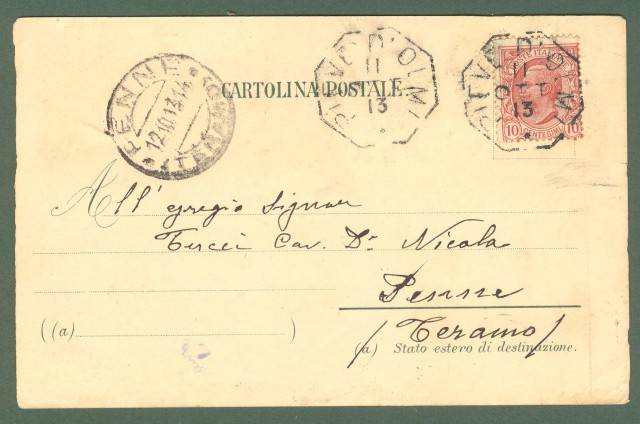 PIEVE D'OLMI
11
OTT
13
PIEVE D'OLMI
11
13
POSTE ITALIANE
10 CENTESIMI 10
PENNE
12.10.13.14
(TERAMO)
CARTOLINA POSTALE
All' egregio Signor
Cav. Dr. Nicola
Penne
(Teramo)
((a) )
(a) Stato estero di destinazione.